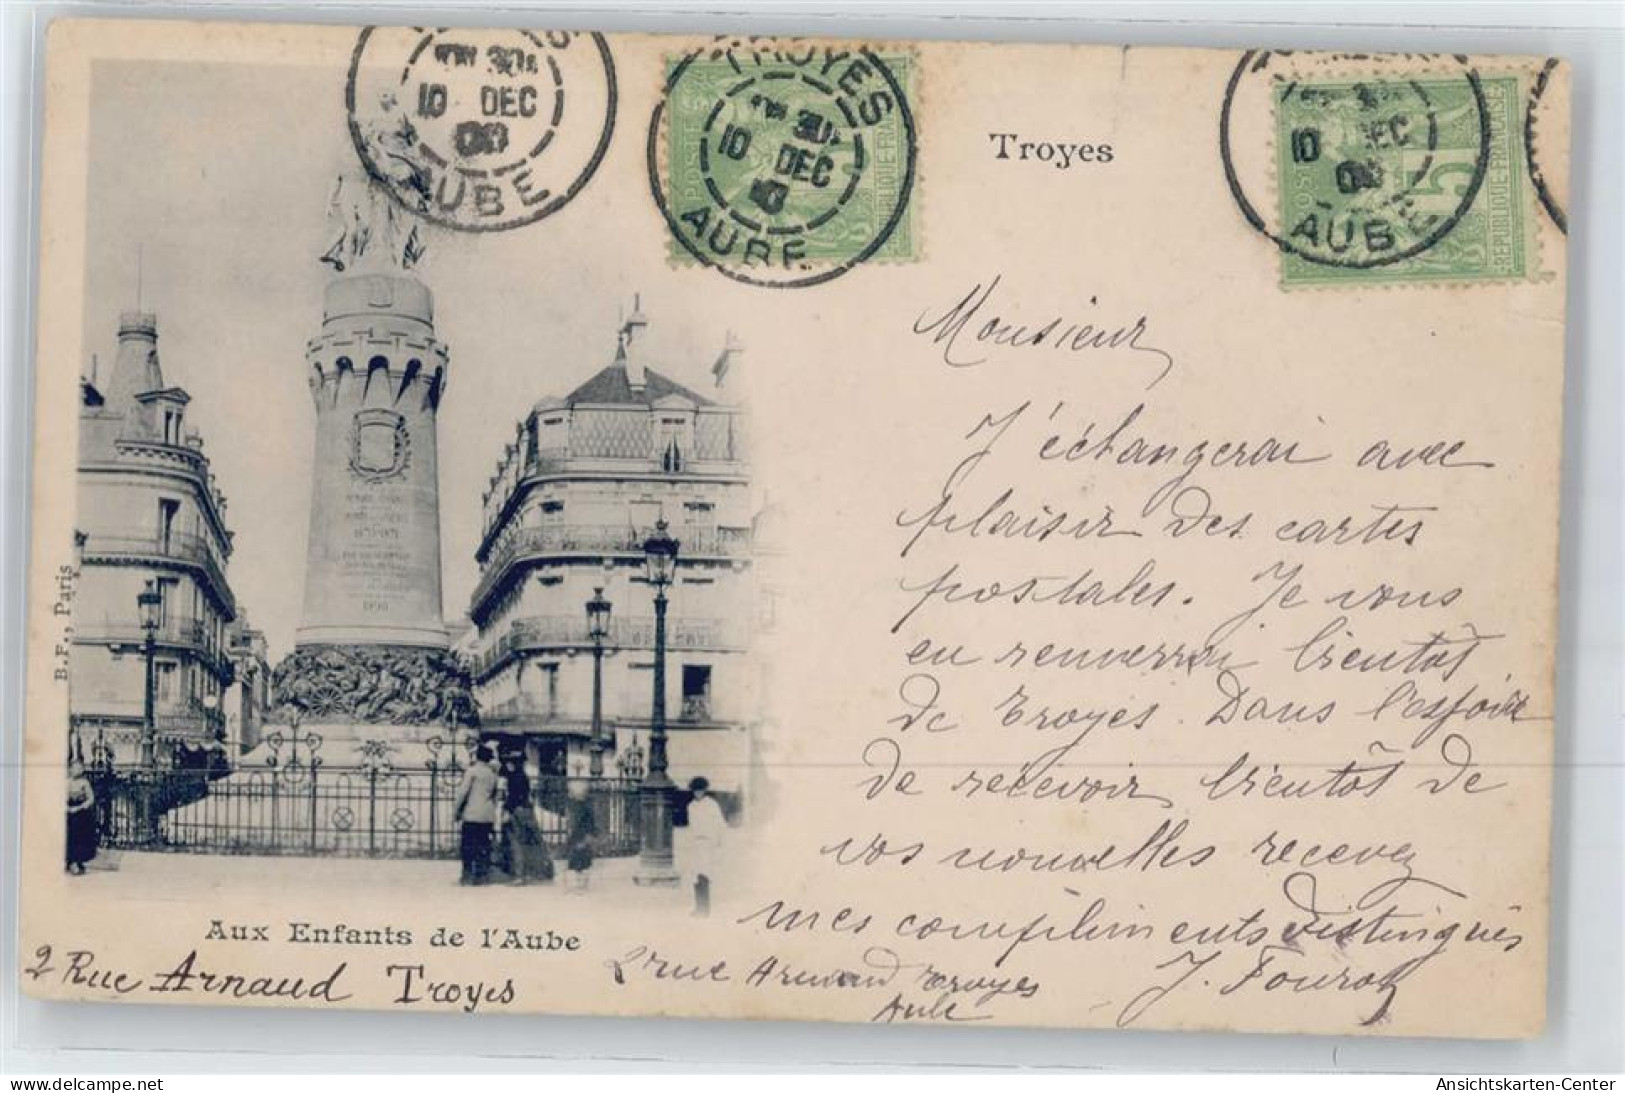 10 DEC
AUBE
TROYES
10 DEC
AUBE
10 DEC
AUBE
POSTE
5
REPUBLIQUE FRANÇAISE
Troyes
Monsieur
J'échangerai avec
plaisir des cartes
postales. Je vous
en renverrai bientôt
de Troyes. Dans l'espoir
de recevoir bientôt de
vos nouvelles recevez
mes compliments distingués
J. Fouroz
2 rue Arnaud Troyes
Aube
B. F., Paris
1870-1871
1890
Aux Enfants de l'Aube
2 Rue Arnaud Troyes
Ansichtskarten-Center
www.delcampe.net